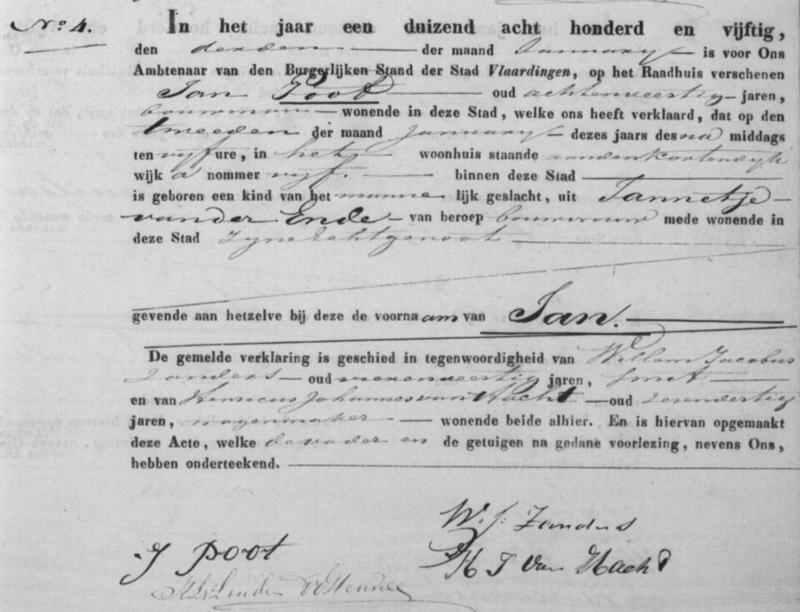 No. 4. In het jaar een duizend acht honderd en vijftig,
den derden der maand January is voor Ons
Ambtenaar van den Burgerlijken Stand der Stad Vlaardingen, op het Raadhuis verschenen
Jan Poot oud achtenveertig jaren,
bouwman wonende in deze Stad, welke ons heeft verklaard, dat op den
tweeden der maand January dezes jaars des na middags
ten vyf ure, in het woonhuis staande aandenkortendyk
wijk a nommer vyf. binnen deze Stad
is geboren een kind van het manne lijk geslacht, uit Jannetje
van der Ende van beroep bouwvrouw mede wonende in
deze Stad zyne Echtgenoot
gevende aan hetzelve bij deze de voornaam van Jan.
De gemelde verklaring is geschied in tegenwoordigheid van Willem Jacobus
Zanders oud jaren, smit
en van Henricus Johannes van Hacht oud zevendertig
jaren, wagenmaker wonende beide alhier. En is hiervan opgemaakt
deze Acte, welke de vader en de getuigen na gedane voorlezing, nevens Ons,
hebben onderteekend.
W. J. Zanders
J Poot
H J van Hacht